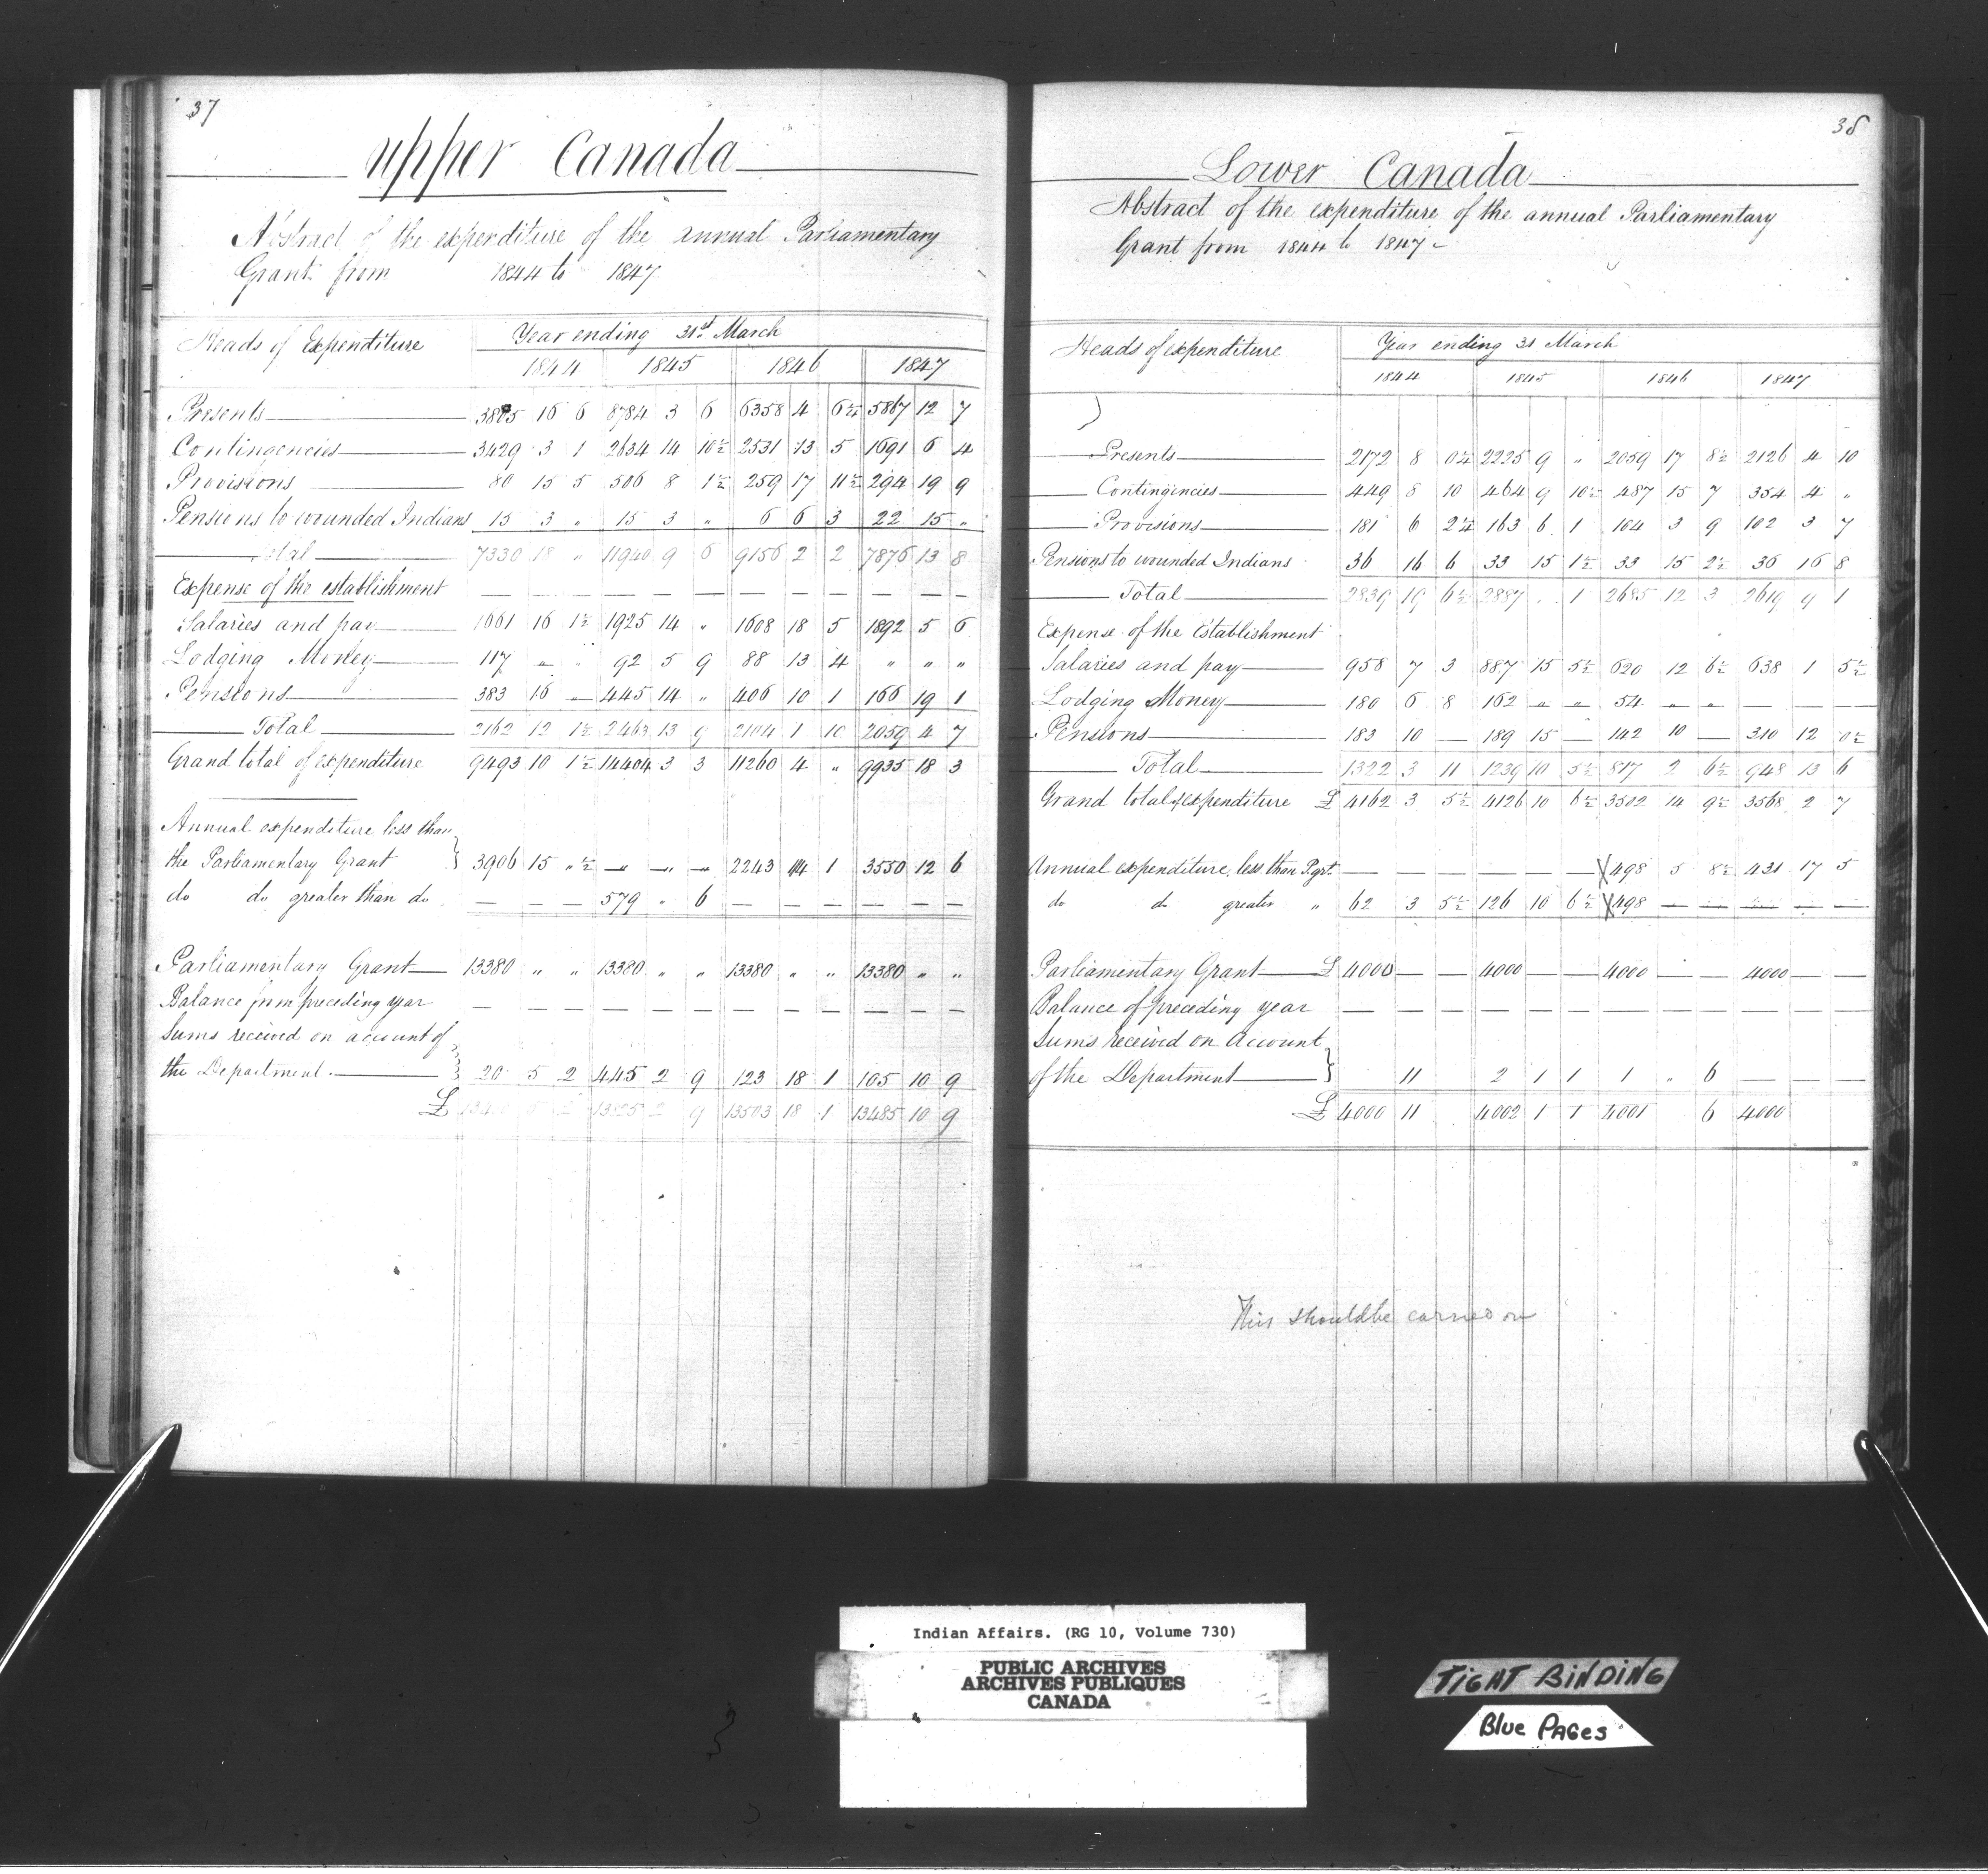 37
Upper Canada
Abstract of the expenditure of the annual Parliamentary
Grant from 1844 to 1847
Heads of Expenditure Year ending 31st March
1844 1845 1846 1847
Presents 3805 16 6 8784 3 6 6358 4 6¼ 5867 12 7
Contingencies 3429 3 1 2634 14 10½ 2531 13 5 1691 6 4
Provisions 80 15 5 506 8 1½ 259 17 11½ 294 19 9
Pensions to wounded Indians 15 3 " 15 3 " 6 6 3 22 15 "
Total 7330 18 " 11940 9 6 9156 2 2 7876 13 8
Expense of the establishment — — — — — — — — — — — —
Salaries and pay 1661 16 1½ 1925 14 " 1608 18 5 1892 5 6
Lodging Money 117 — " 92 5 9 88 13 4 " " "
Pensions 383 16 — 445 14 " 406 10 1 166 19 1
Total 2162 12 1½ 2463 13 9 2104 1 10 2059 4 7
Grand total of expenditure 9493 10 1½ 14404 3 3 11260 4 " 9935 18 3
Annual expenditure less than
the Parliamentary Grant 3906 15 " ½ — — — 2243 14 1 3550 12 6
do do greater than do — — — 579 " 6 — — — — — —
Parliamentary Grant 13380 " " 13380 " " 13380 " " 13380 " "
Balance from preceding year — — — — — — — — — — — —
Sums received on account of
the Department 20 5 2 445 2 9 123 18 1 105 10 9
£ 13400 5 2 13825 2 9 13503 18 1 13485 10 9
38
Lower Canada
Abstract of the expenditure of the annual Parliamentary
Grant from 1844 to 1847 -
Heads of expenditure Year ending 31 March
1844 1845 1846 1847
Presents 2172 8 0¼ 2225 9 " 2059 17 8½ 2126 4 10
Contingencies 449 8 10 464 9 10½ 487 15 7 354 4 "
Provisions 181 6 2¼ 163 6 1 104 3 9 102 3 7
Pensions to wounded Indians 36 16 6 33 15 1½ 33 15 2½ 36 16 8
Total 2839 19 6½ 2887 . 1 2685 12 3 2619 9 1
Expense of the Establishment
Salaries and pay 958 7 3 887 15 5½ 620 12 6½ 638 1 5½
Lodging Money 180 6 8 162 " " 54 " " — — —
Pensions 183 10 — 189 15 — 142 10 — 310 12 0½
Total 1322 3 11 1239 10 5½ 817 2 6½ 948 13 6
Grand total of expenditure £ 4162 3 5½ 4126 10 6½ 3502 14 9½ 3568 2 7
Annual expenditure less than P. grt. — — — — — — X 498 5 8½ 431 17 5
do do greater " 62 3 5½ 126 10 6½ X 498 — — — — —
Parliamentary Grant £ 4000 — — 4000 — — 4000 — — 4000 — —
Balance of preceding year — — — — — — — — — — — —
Sums received on Account
of the Department 11 2 1 1 1 " 6 — — —
£ 4000 11 4002 1 1 4001 6 4000
This should be carried on
Indian Affairs. (RG 10, Volume 730)
PUBLIC ARCHIVES
ARCHIVES PUBLIQUES
CANADA
TIGHT BINDING
Blue PAGes